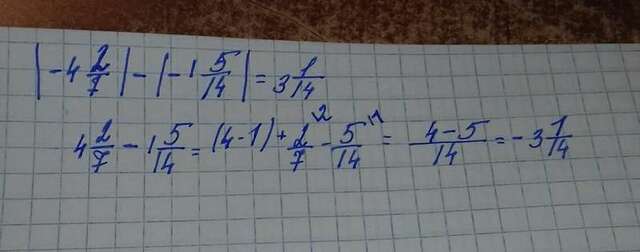 |-4 2/7| - |-1 5/14| = 3 1/14
4 2/7 - 1 5/14 = (4-1) + 2/7 \2 - 5/14 \1 = 4-5/14 = -3 1/14